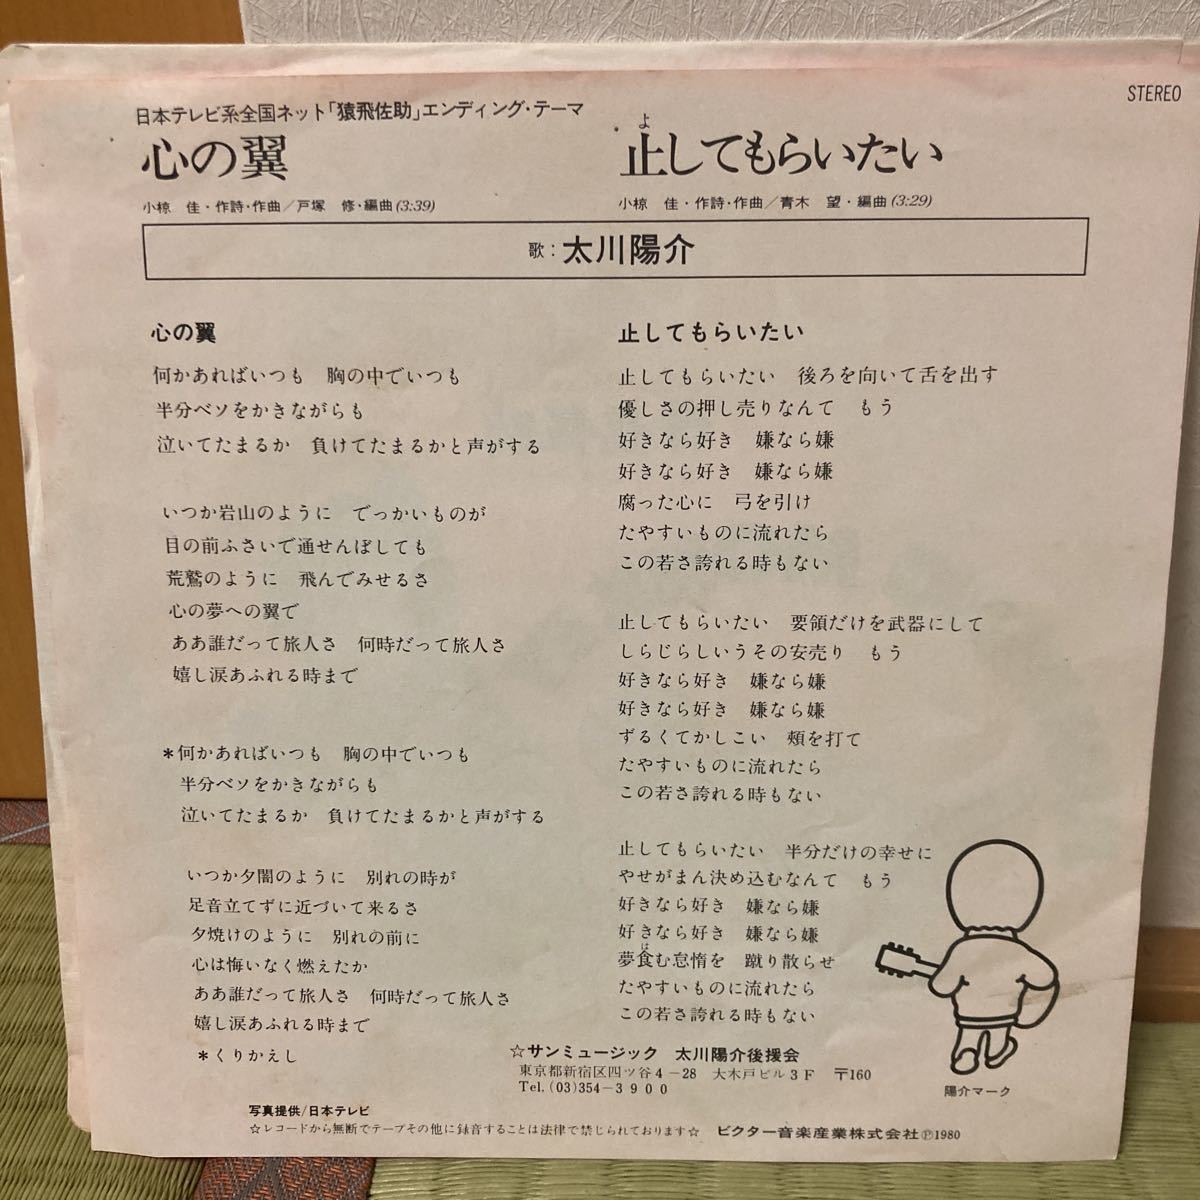 STEREO
日本テレビ系全国ネット「猿飛佐助」エンディング・テーマ
心の翼
小椋 佳・作詩・作曲／戸塚 修・編曲(3:39)
よ
止してもらいたい
小椋 佳・作詩・作曲／青木 望・編曲(3:29)
歌：太川陽介
心の翼
何かあればいつも 胸の中でいつも
半分ベソをかきながらも
泣いてたまるか 負けてたまるかと声がする
いつか岩山のように でっかいものが
目の前ふさいで通せんぼしても
荒鷲のように 飛んでみせるさ
心の夢への翼で
ああ誰だって旅人さ 何時だって旅人さ
嬉し涙あふれる時まで
*何かあればいつも 胸の中でいつも
半分ベソをかきながらも
泣いてたまるか 負けてたまるかと声がする
いつか夕闇のように 別れの時が
足音立てずに近づいて来るさ
夕焼けのように 別れの前に
心は悔いなく燃えたか
ああ誰だって旅人さ 何時だって旅人さ
嬉し涙あふれる時まで
*くりかえし
止してもらいたい
止してもらいたい 後ろを向いて舌を出す
優しさの押し売りなんて もう
好きなら好き 嫌なら嫌
好きなら好き 嫌なら嫌
腐った心に 弓を引け
たやすいものに流れたら
この若さ誇れる時もない
止してもらいたい 要領だけを武器にして
しらじらしいうその安売り もう
好きなら好き 嫌なら嫌
好きなら好き 嫌なら嫌
ずるくてかしこい 頬を打て
たやすいものに流れたら
この若さ誇れる時もない
止してもらいたい 半分だけの幸せに
やせがまん決め込むなんて もう
好きなら好き 嫌なら嫌
好きなら好き 嫌なら嫌
は
夢食む怠惰を 蹴り散らせ
たやすいものに流れたら
この若さ誇れる時もない
陽介マーク
☆サンミュージック 太川陽介後援会
東京都新宿区四ツ谷4－28 大木戸ビル3F 〒160
Tel.(03)354－3900
写真提供/日本テレビ
☆レコードから無断でテープその他に録音することは法律で禁じられております☆ ビクター音楽産業株式会社Ⓟ1980